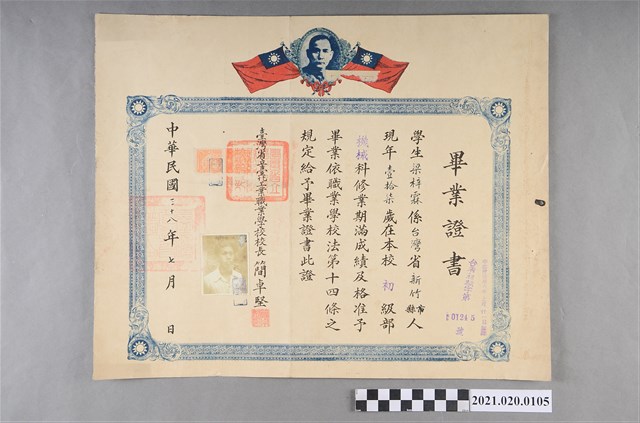 畢業證書
學生梁梓霖係台灣省新竹市縣人
現年壹拾柒歲在本校初級部
機械科修業期滿成績及格准予
畢業依職業學校法第十四條之
規定給予畢業證書此證
臺灣省立臺北工業職業學校校長簡卓堅
中華民國三十八年七月 日
01245
號
2021.020.0105